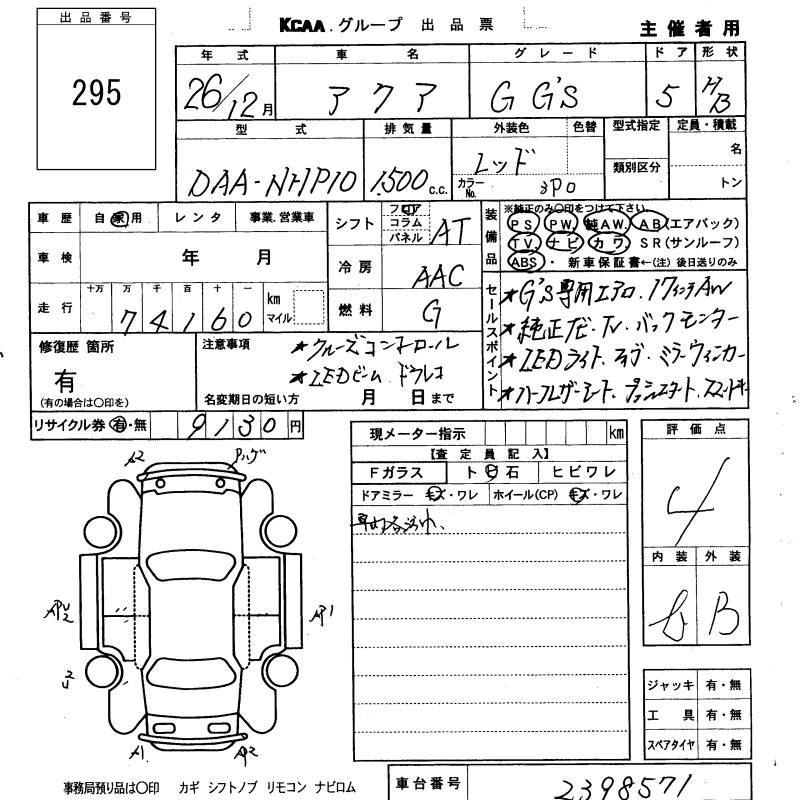 出品番号
295
KCAA.グループ 出品票
主催者用
年式 車名 グレード ドア 形状
26/12月 アクア G G'S 5 H/B
型式 排気量 外装色 色替 型式指定 定員・積載
DAA-NHP10 1,500 c.c. レッド 名
カラーNo. 3P0 類別区分 トン
車歴 自家用 レンタ 事業.営業車
シフト フロア コラム パネル AT
装備品
※純正のみ〇印をつけて下さい。
PS PW 純AW. AB(エアバック)
TV. ナビ カワ SR(サンルーフ)
ABS・ 新車保証書←(注) 後日送りのみ
車検 年 月
冷房 AAC
走行 十万 万 千 百 十 一 km マイル
74160
燃料 G
セールスポイント
★G'S専用エアロ.17インチAW
★純正ナビ・TV.バックモニター
★LEDライト.
★ハーフレザーシート.プッシュスタート.スマートキー
修復歴 箇所
有
(有の場合は〇印を)
注意事項
★クルーズコントロール
★LEDビーム ドラレコ
名変期日の短い方 月 日まで
リサイクル券 有・無 9130円
現メーター指示 km
【査定員記入】
Fガラス トビ石 ヒビワレ
ドアミラー キズ・ワレ ホイール(CP) キズ・ワレ
評価点
4
内装 外装
B
A2
AP1
A1
AP2
ジャッキ 有・無
工具 有・無
スペアタイヤ 有・無
事務局預り品は〇印 カギ シフトノブ リモコン ナビロム
車台番号 2398571